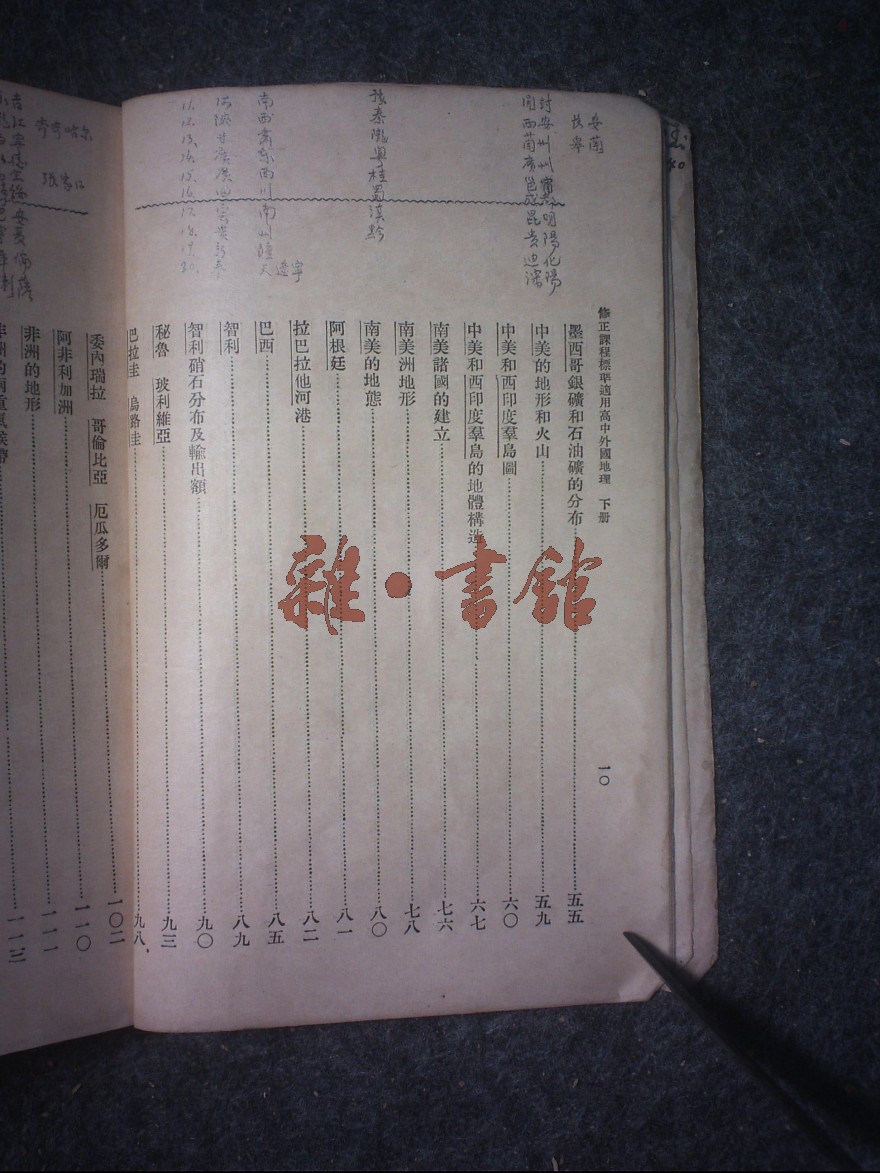 修正課程標準適用高中外國地理 下册
一〇
墨西哥銀礦和石油礦的分布 五五
中美的地形和火山 五九
中美和西印度羣島圖 六〇
中美和西印度羣島的地體構造 六七
南美諸國的建立 七六
南美洲地形 七八
南美的地態 八〇
阿根廷 八一
拉巴拉他河港 八二
巴西 八五
智利 八九
智利硝石分布及輸出額 九〇
秘魯 玻利維亞 九三
巴拉圭 烏路圭 九八
委內瑞拉 哥倫比亞 厄瓜多爾 一〇二
阿非利加洲 一一〇
非洲的地形 一一一
非洲的兩重氣候帶 一一三
雜·書館
豫秦隴粵桂蜀滇黔
遼寧
張家口
11.
12.
13.
14.
15.
16.
17.
18.
19.
20.